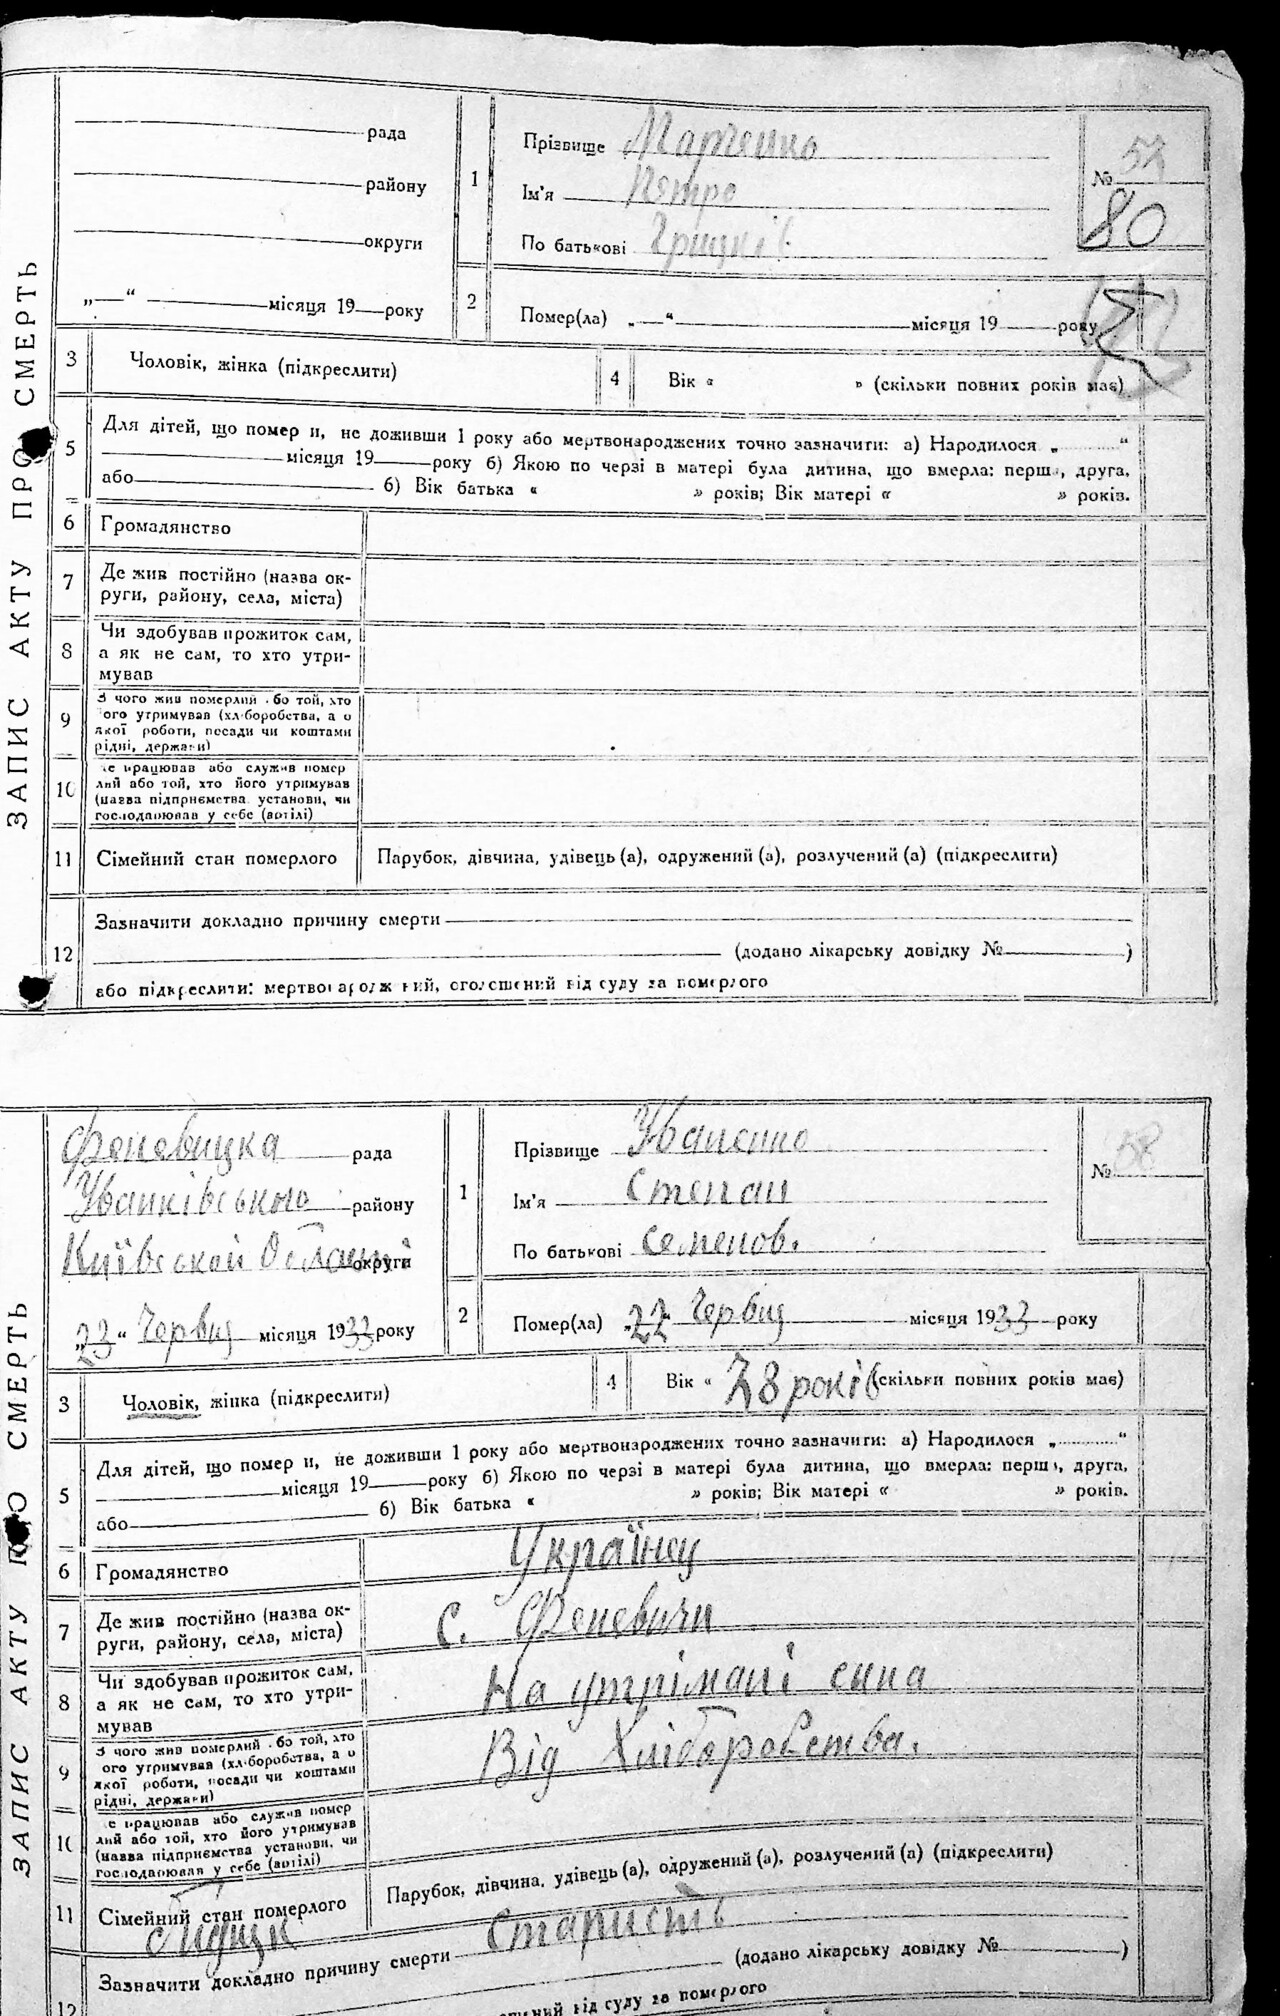 ЗАПИС АКТУ ПРО СМЕРТЬ
рада
району
округи
„—“ місяця 19 року
1
Прізвище Марченко
Ім'я Петро
По батькові Грицків
№ 57
80
2
Помер(ла) „—“ місяця 19 року
3 Чоловік, жінка (підкреслити)
4 Вік « » (скільки повних років має)
5 Для дітей, що помер и, не доживши 1 року або мертвонароджених точно зазначити: а) Народилося „ “
місяця 19 року б) Якою по черзі в матері була дитина, що вмерла: перш , друга,
або б) Вік батька « » років; Вік матері « » років.
6 Громадянство
7 Де жив постійно (назва ок-
руги, району, села, міста)
8 Чи здобував прожиток сам,
а як не сам, то хто утри-
мував
9 З чого жив померлий бо той, хто
ого утримував (хл боробства, а о
якої роботи, посади чи коштами
рідні, держави)
10 е працював або служив помер
лий або той, хто його утримував
(назва підприємства установи, чи
господарював у себе (артілі)
11 Сімейний стан померлого Парубок, дівчина, удівець (а), одружений (а), розлучений (а) (підкреслити)
12 Зазначити докладно причину смерти
(додано лікарську довідку № )
або підкреслити: мертвонароджений, оголошений від суду за померлого
ЗАПИС АКТУ ПРО СМЕРТЬ
Феневицка рада
Іванківського району
Київської Області округи
„23“ Червня місяця 1933 року
1
Прізвище Іваненко
Ім'я Степан
По батькові Семенов.
№ 58
2
Помер(ла) „22“ Червня місяця 1933 року
3 Чоловік, жінка (підкреслити)
4 Вік « 78 років (скільки повних років має)
5 Для дітей, що помер и, не доживши 1 року або мертвонароджених точно зазначити: а) Народилося „ “
місяця 19 року б) Якою по черзі в матері була дитина, що вмерла: перш , друга,
або б) Вік батька « » років; Вік матері « » років.
6 Громадянство Українец
7 Де жив постійно (назва ок-
руги, району, села, міста) С. Феневичи
8 Чи здобував прожиток сам,
а як не сам, то хто утри-
мував На утрімані сина
9 З чого жив померлий бо той, хто
ого утримував (хл боробства, а о
якої роботи, посади чи коштами
рідні, держави) Від Хліборобства.
10 е працював або служив помер
лий або той, хто його утримував
(назва підприємства установи, чи
господарював у себе (артілі)
11 Сімейний стан померлого Парубок, дівчина, удівець (а), одружений (а), розлучений (а) (підкреслити)
12 Зазначити докладно причину смерти Старість
(додано лікарську довідку № )
від суду за померлого